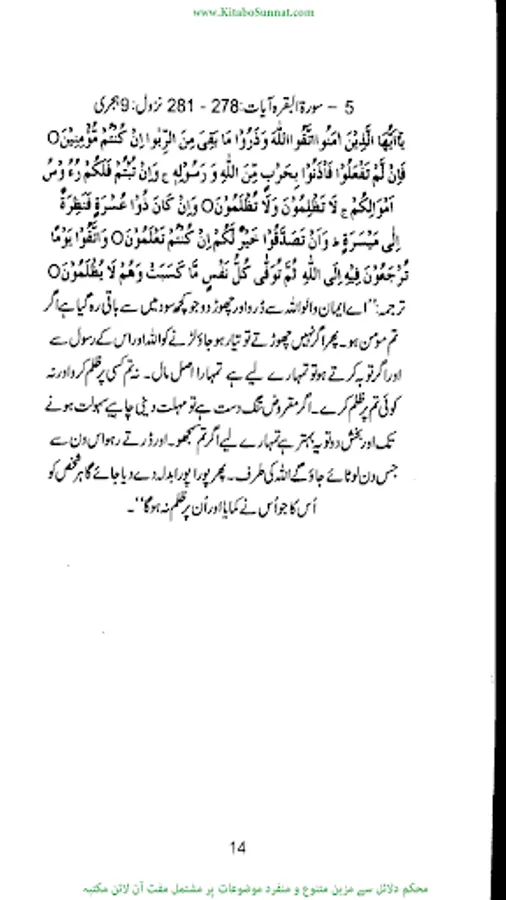 www.KitaboSunnat.com
5 - سورة البقرہ آیات: 278 - 281 نزول: 9 ہجری
یٰۤاَیُّهَا الَّذِیْنَ اٰمَنُوا اتَّقُوا اللّٰهَ وَذَرُوْا مَا بَقِیَ مِنَ الرِّبٰوا اِنْ كُنْتُمْ مُّؤْمِنِیْنَ○
فَاِنْ لَّمْ تَفْعَلُوْا فَاْذَنُوْا بِحَرْبٍ مِّنَ اللّٰهِ وَ رَسُوْلِهٖ ج وَاِنْ تُبْتُمْ فَلَكُمْ رُءُ وْسُ
اَمْوَالِكُمْ ج لَا تَظْلِمُوْنَ وَلَا تُظْلَمُوْنَ○ وَاِنْ كَانَ ذُوْا عُسْرَةٍ فَنَظِرَةٌ
اِلٰی مَیْسَرَةٍ ط وَاَنْ تَصَدَّقُوْا خَیْرٌ لَّكُمْ اِنْ كُنْتُمْ تَعْلَمُوْنَ○ وَاتَّقُوْا یَوْمًا
تُرْجَعُوْنَ فِیْهِ اِلَی اللّٰهِ ثُمَّ تُوَفّٰی كُلُّ نَفْسٍ مَّا كَسَبَتْ وَهُمْ لَا یُظْلَمُوْنَ○
ترجمہ: ’’اے ایمان والو اللہ سے ڈرو اور چھوڑ دو جو کچھ سود میں سے باقی رہ گیا ہے اگر
تم مومن ہو۔ پھر اگر نہیں چھوڑتے تو تیار ہو جاؤ لڑنے کو اللہ اور اس کے رسول سے
اور اگر توبہ کرتے ہو تو تمہارے لیے ہے تمہارا اصل مال۔ نہ تم کسی پر ظلم کرو اور نہ
کوئی تم پر ظلم کرے۔ اگر مقروض تنگ دست ہے تو مہلت دینی چاہیے سہولت ہونے
تک اور بخش دو تو یہ بہتر ہے تمہارے لیے اگر تم سمجھو۔ اور ڈرتے رہو اس دن سے
جس دن لوٹائے جاؤ گے اللہ کی طرف۔ پھر پورا پورا بدلہ دے دیا جائے گا ہر شخص کو
اُس کا جو اُس نے کمایا اور اُن پر ظلم نہ ہوگا‘‘۔
14
محکم دلائل سے مزین متنوع و منفرد موضوعات پر مشتمل مفت آن لائن مکتبہ